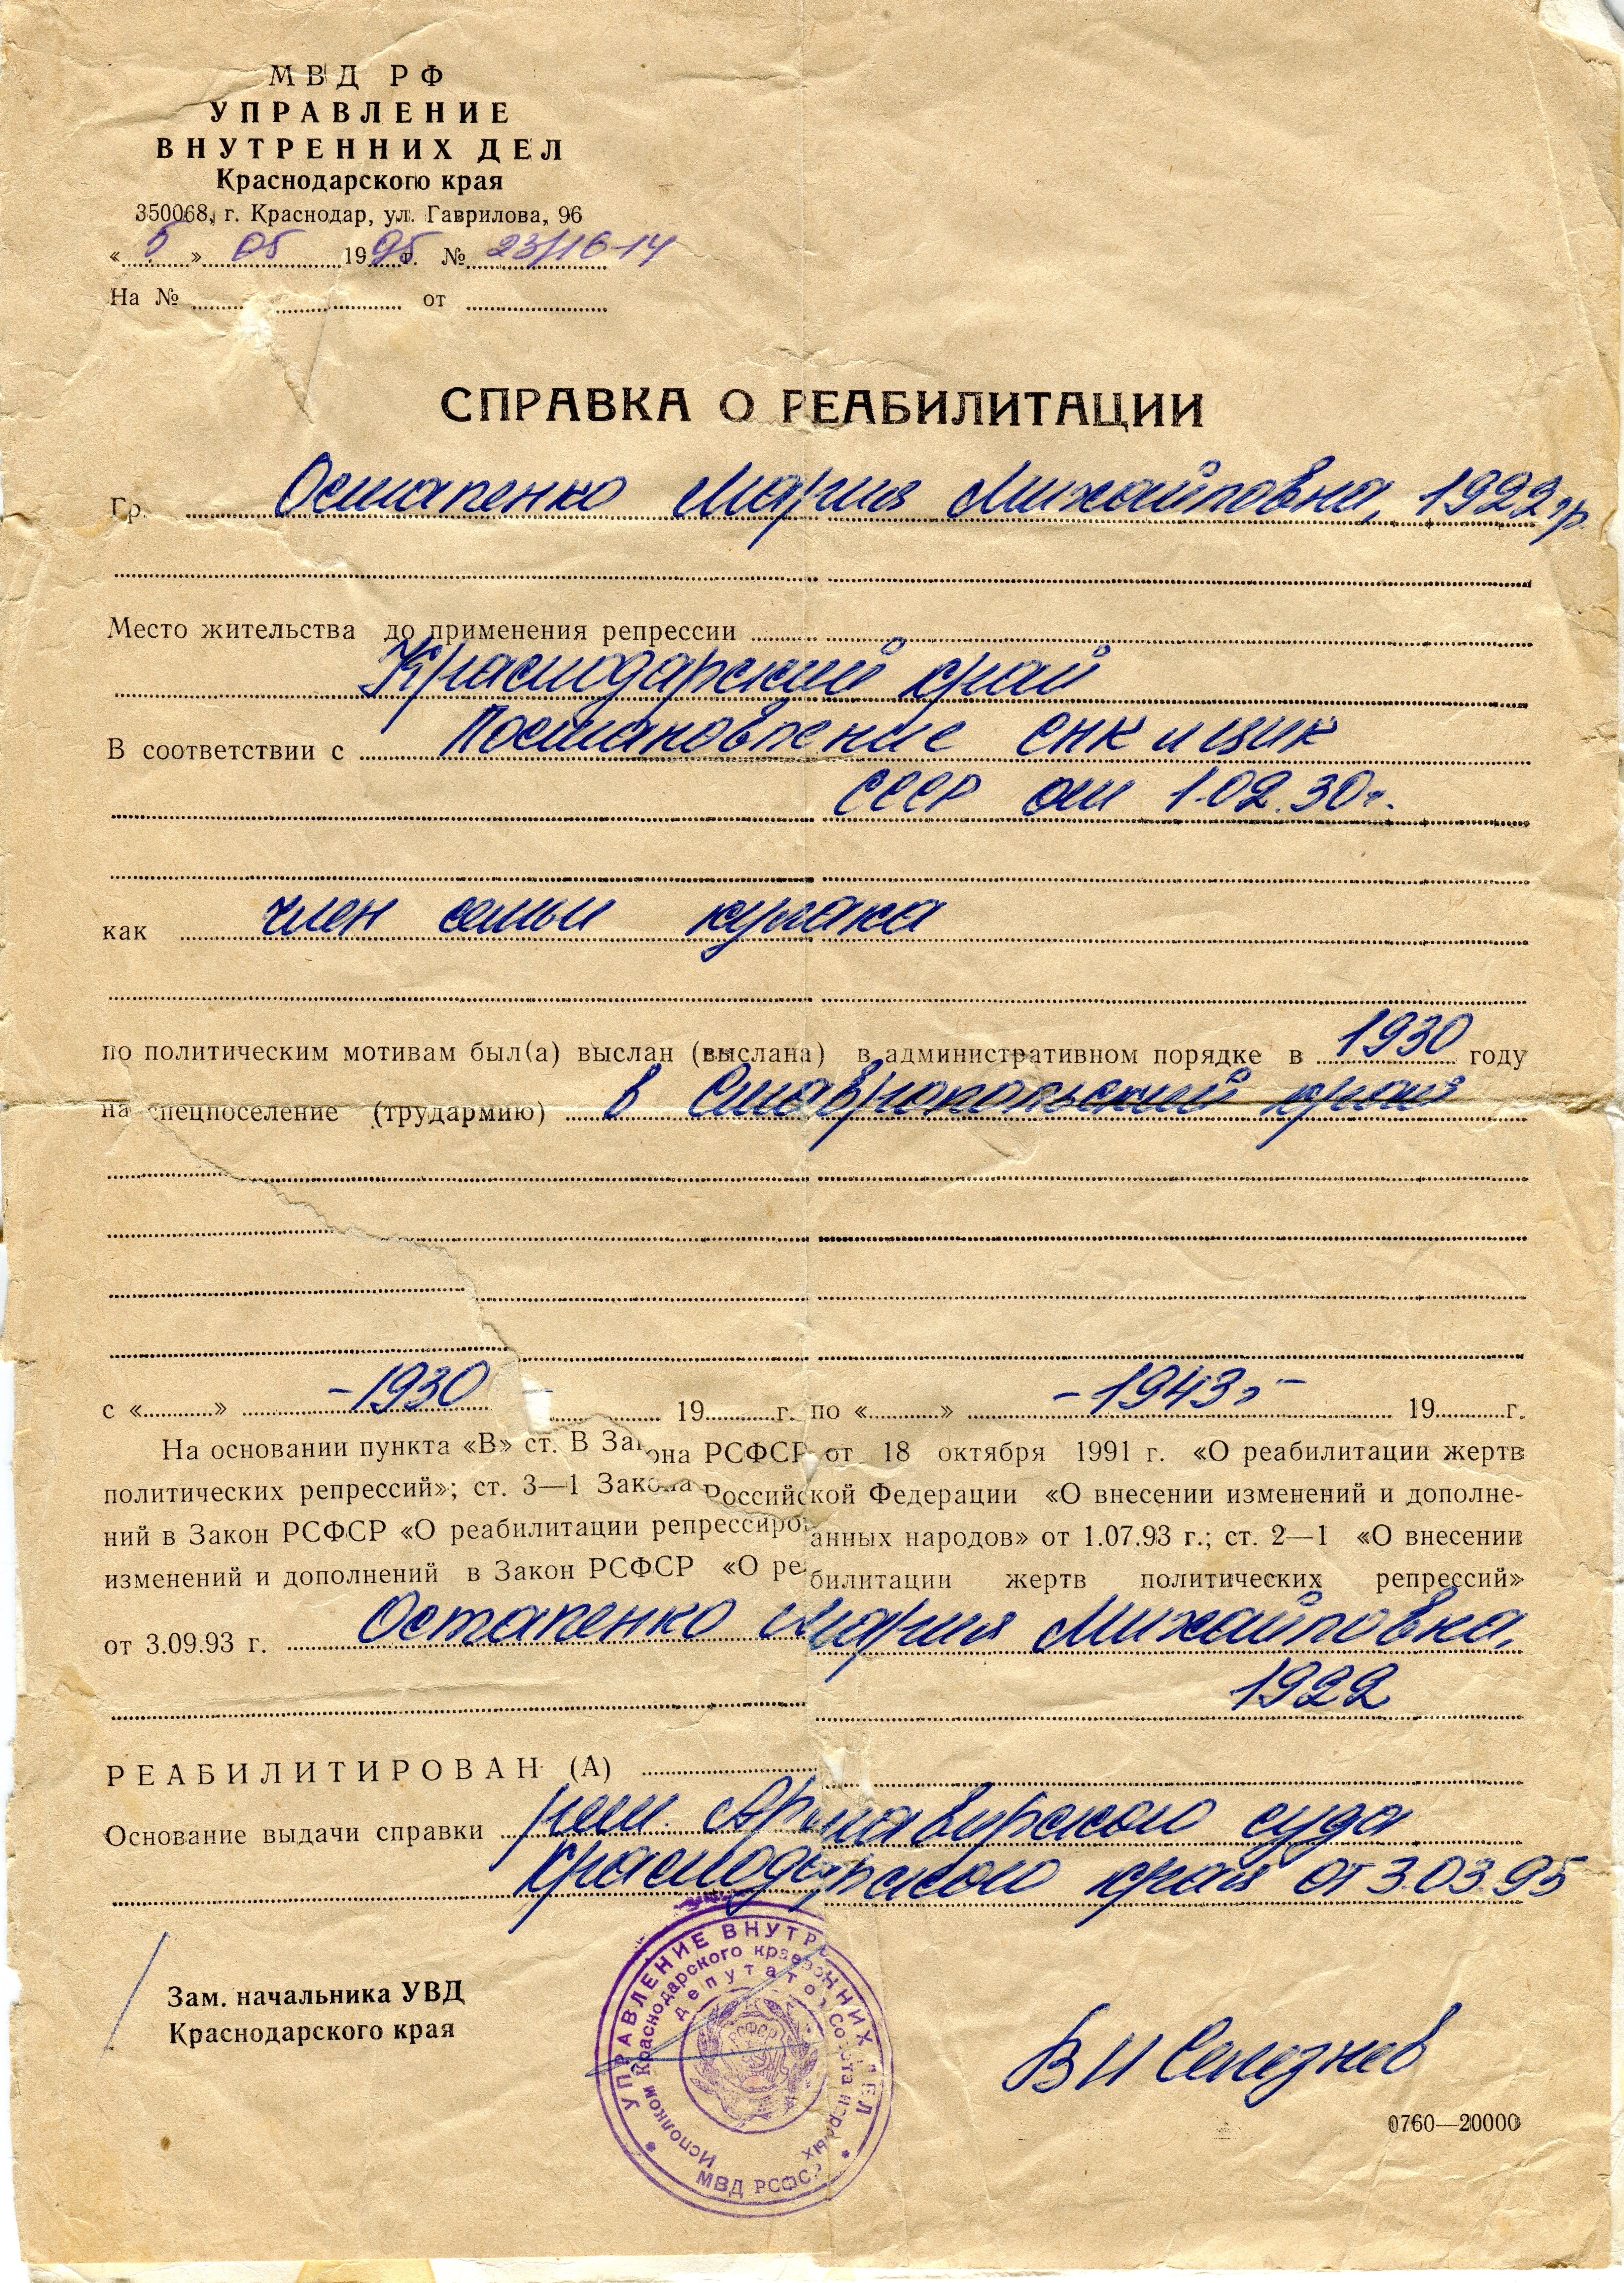 МВД РФ
УПРАВЛЕНИЕ
ВНУТРЕННИХ ДЕЛ
Краснодарского края
350068, г. Краснодар, ул. Гаврилова, 96
« 5 » 05 1995 г. № 23/16-14
На № от
СПРАВКА О РЕАБИЛИТАЦИИ
Гр. Остапенко Мария Михайловна, 1922 г.р.
Место жительства до применения репрессии
Краснодарский край
В соответствии с Постановление СНК и ЦИК
СССР от 1.02.30г.
как член семьи кулака
по политическим мотивам был(а) выслан (выслана) в административном порядке в 1930 году
на спецпоселение (трудармию) в Ставропольский край
с « » -1930- 19 г. по « » -1943г.- 19 г.
На основании пункта «В» ст. В Закона РСФСР от 18 октября 1991 г. «О реабилитации жертв
политических репрессий»; ст. 3—1 Закона Российской Федерации «О внесении изменений и дополне-
ний в Закон РСФСР «О реабилитации репрессированных народов» от 1.07.93 г.; ст. 2—1 «О внесении
изменений и дополнений в Закон РСФСР «О реабилитации жертв политических репрессий»
от 3.09.93 г. Остапенко Мария Михайловна,
1922
РЕАБИЛИТИРОВАН (А)
Основание выдачи справки реш. Армавирского суда
Краснодарского края от 3.03.95
Зам. начальника УВД
Краснодарского края
В И Селезнев
УПРАВЛЕНИЕ ВНУТРЕННИХ ДЕЛ
Исполком Краснодарского краевого Совета народных
депутатов
РСФСР
МВД РСФСР
0760—20000